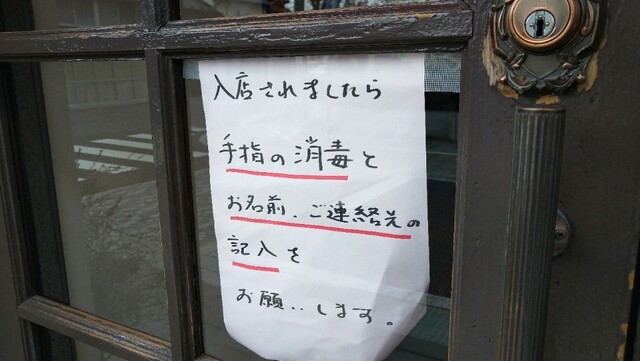 入店されましたら
手指の消毒と
お名前、ご連絡先の
記入を
お願いします。